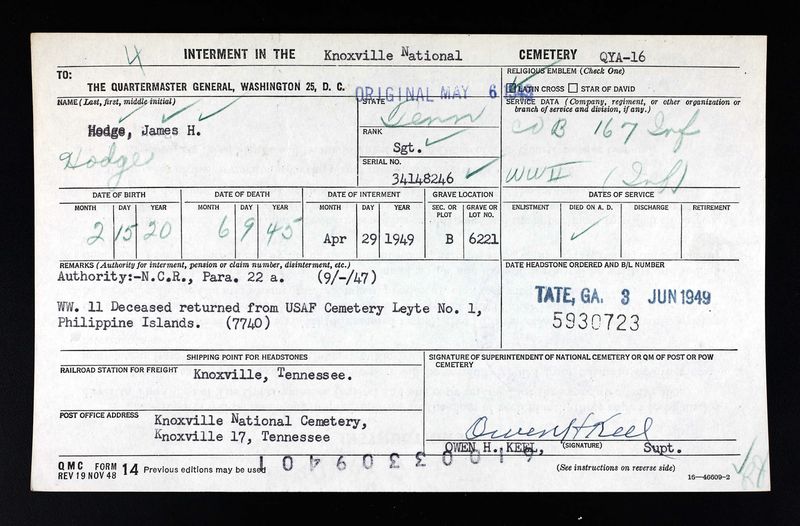 4
INTERMENT IN THE Knoxville National CEMETERY QYA-16
TO:
THE QUARTERMASTER GENERAL, WASHINGTON 25, D. C.
ORIGINAL MAY 6 1949
RELIGIOUS EMBLEM (Check One)
LATIN CROSS STAR OF DAVID
NAME (Last, first, middle initial)
Hodge, James H.
Hodge
STATE
Tenn
RANK
Sgt.
SERIAL NO.
34148246
SERVICE DATA (Company, regiment, or other organization or branch of service and division, if any.)
CO B 167 Inf
WW II (Inf)
DATE OF BIRTH DATE OF DEATH DATE OF INTERMENT GRAVE LOCATION DATES OF SERVICE
MONTH DAY YEAR MONTH DAY YEAR MONTH DAY YEAR SEC. OR PLOT GRAVE OR LOT NO. ENLISTMENT DIED ON A. D. DISCHARGE RETIREMENT
2 15 20 6 9 45 Apr 29 1949 B 6221
REMARKS (Authority for interment, pension or claim number, disinterment, etc.)
Authority:-N.C.R., Para. 22 a. (9/-/47)
WW. 11 Deceased returned from USAF Cemetery Leyte No. 1,
Philippine Islands. (7740)
DATE HEADSTONE ORDERED AND B/L NUMBER
TATE, GA. 3 JUN 1949
5930723
SHIPPING POINT FOR HEADSTONES
RAILROAD STATION FOR FREIGHT
Knoxville, Tennessee.
POST OFFICE ADDRESS
Knoxville National Cemetery,
Knoxville 17, Tennessee
SIGNATURE OF SUPERINTENDENT OF NATIONAL CEMETERY OR QM OF POST OR POW CEMETERY
Owen H Keel
OWEN H. KEEL, (SIGNATURE) Supt.
QMC FORM 14 Previous editions may be used
REV 19 NOV 48
(See instructions on reverse side)
16—46609-2